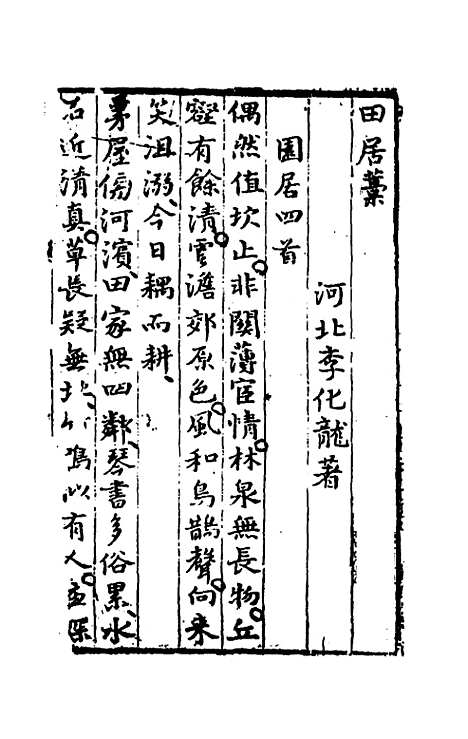 田居藁
河北李化龍著
園居四首
偶然值坎止非關薄宦情林泉無長物丘
壑有餘清雲澹郊原色風和鳥鵲聲向来
笑沮溺今日耦而耕
茅屋傍河濱田家無四鄰琴書多俗累水
石近清真草長疑無地 鳴似有人